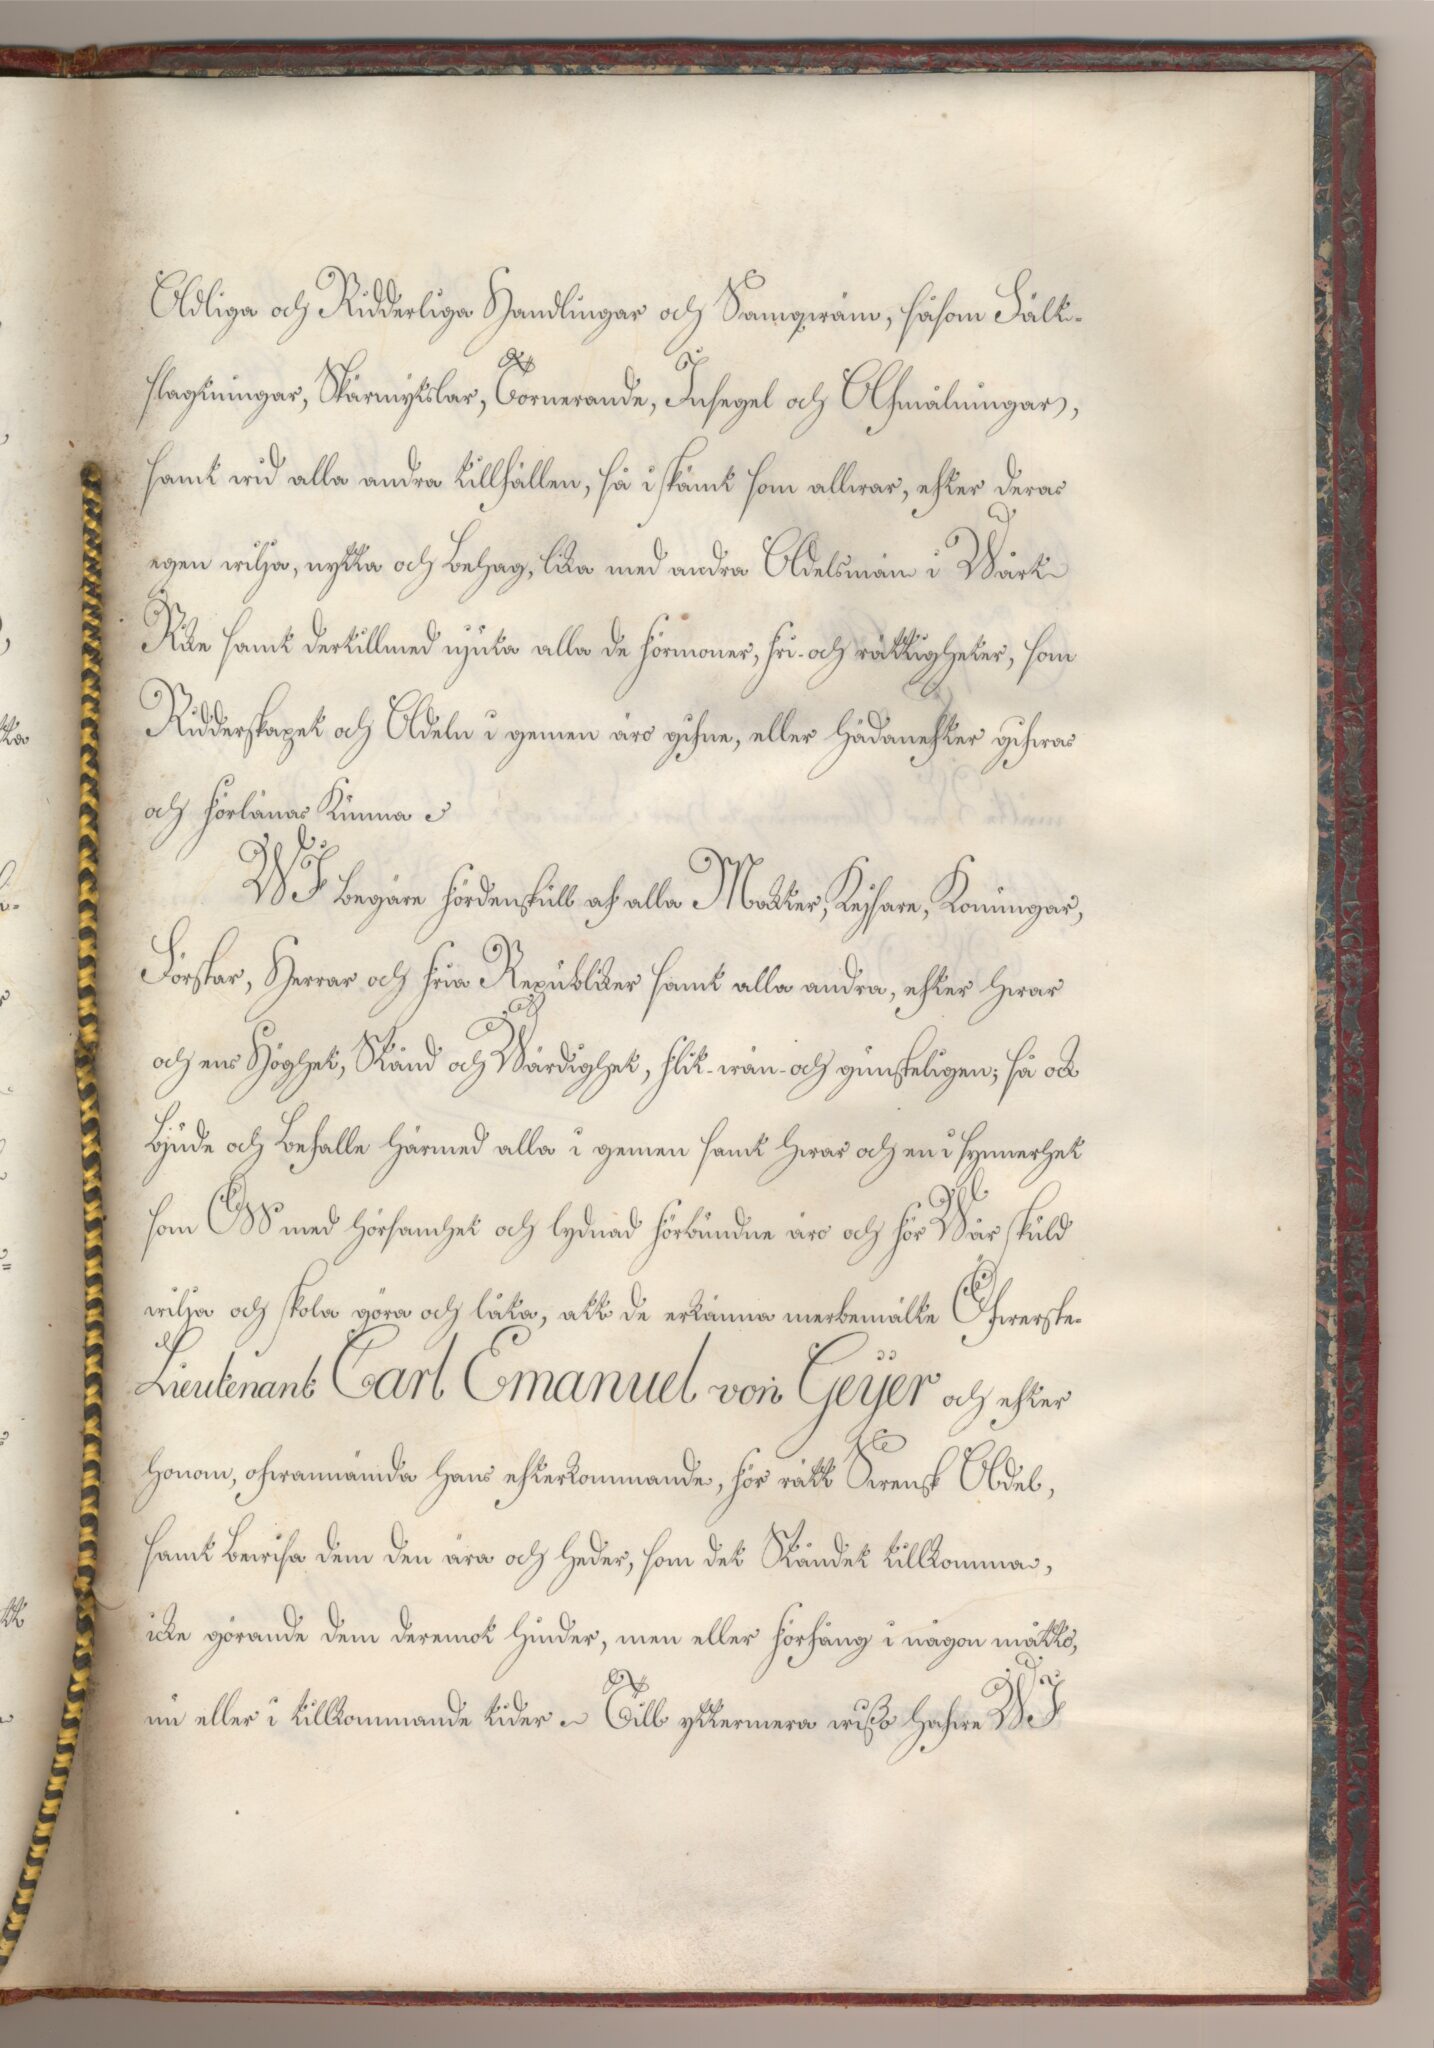 Adliga och Ridderliga Handlingar och Samqwäm, såsom Fält-
slagtningar, Skärmytslar, Tornerande, Insegel och Afmålningar,
samt wid alla andra tillfällen, så i skämt som allwar, efter deras
egen wilja, nytta och behag, lika med andra Adelsmän i Wårt
Rike samt dertillmed njuta alla de förmoner, fri- och rättigheter, som
Ridderskapet och Adeln i gemen äro gifne, eller hädanefter gifwas
och förlänas kunna.
WJ begäre fördenskull af alla Makter, Kejsare, Konungar,
Förstar, Herrar och fria Republiker samt alla andra, efter hwar
och ens Höghet, Stånd och Wärdighet, flit- wän- och gunsteligen; så ock
bjude och befalle härmed alla i gemen samt hwar och en i synnerhet
som OSS med hörsamhet och lydnad förbundne äro och för Wår skuld
wilja och skola göra och låta, att de erkänna merbemälte Öfwerste-
Lieutenant Carl Emanuel von Geijer och efter
honom, ofwannämda hans efterkommande, för rätt Swensk Adel,
samt bewisa dem den ära och heder, som det Ståndet tillkomma,
icke görande dem deremot hinder, men eller förfång i någon måtto,
nu eller i tillkommande tider. Till yttermera wisso hafwe WJ